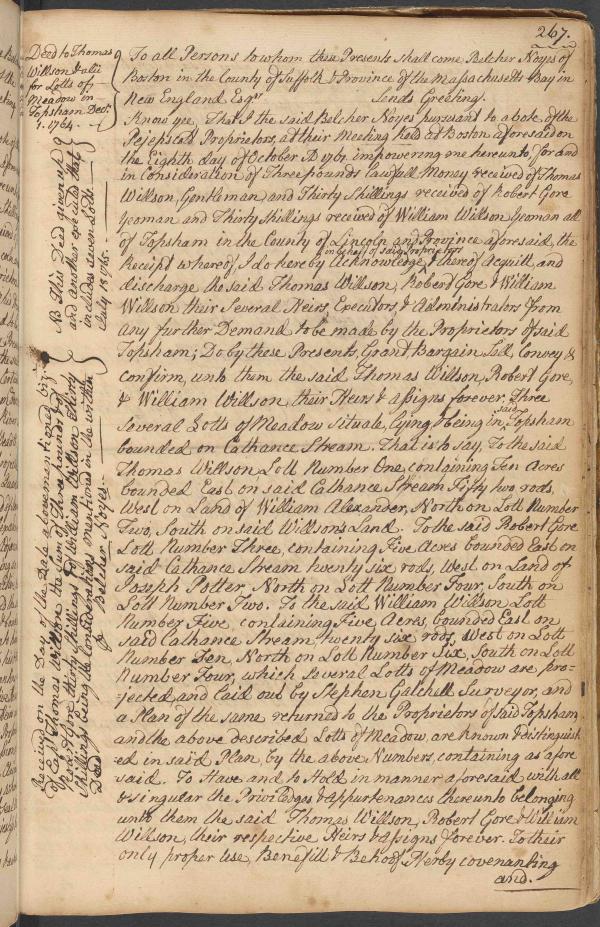 267.
Deed to Thomas
Willson & alii
for Lotts of
Meadow in
Topsham Decr.
1. 1764.
To all Persons to whom these Presents shall come Belcher Noyes of
Boston in the County of Suffolk & Province of the Massachusetts Bay in
New England Esqr. Sends Greeting.
Know yee, That I the said Belcher Noyes pursuant to a vote of the
Pejepscot Proprietors, at their Meeting held at Boston aforesaid on
the Eighth day of October AD 1761. impowering me hereunto, for and
in Consideration of Three pounds lawfull Money received of Thomas
Willson, Gentleman, and Thirty Shillings received of Robert Gore
Yeoman and Thirty Shillings received of William Willson Yeoman all
of Topsham in the County of Lincoln and Province aforesaid, the
in behalf of said Proprietors
Receipt whereof, I do hereby acknowledge, thereof Acquitt and
discharge the said Thomas Willson, Robert Gore & William
Willson their Several Heirs, Executors & Administrators from
any further Demand to be made by the Proprietors of said
Topsham; Do by these Presents, Grant Bargain Sell, Convey &
confirm, unto them the said Thomas Willson, Robert Gore,
& William Willson, their Heirs & assigns forever, Three
said
several Lotts of Meadow situate, lying & being in Topsham
bounded on Cathance Stream. That is to say, To the said
Thomas Willson Lott Number One, containing Ten Acres
bounded East on said Cathance Stream Fifty two rods,
West on Land of William Alexander, North on Lott Number
Two, South on said Willsons Land. To the said Robert Gore
Lott Number Three, containing Five Acres bounded East on
said Cathance Stream twenty six rods, West on Land of
Joseph Potter, North on Lott Number Four, South on
Lott Number Two. To the said William Willson Lott
Number Five, containing Five Acres, bounded East on
said Cathance Stream, twenty six rods, West on Lott
Number Ten, North on Lott Number Six, South on Lott
Number Four, which several Lotts of Meadow are pro-
jected and laid out by Stephen Gatchell Surveyor, and
a Plan of the same returned to the Proprietors of said Topsham,
and the above described Lotts of Meadow, are known & distinguish
ed in said Plan, by the above Numbers, containing as afore
said. To Have and to Hold in manner aforesaid with all
& singular the Priviledges & appurtenances thereunto belonging
unto them the said Thomas Willson, Robert Gore & William
Willson, their respective Heirs & assigns forever. To their
only proper Use, Benefitt & Behoof. Herby covenanting
and.
NB This Deed given up
and another executed that
includes seven Lotts
July 18 1765.
Received on the Day of the Date aforementioned viz.
of Esq. Thomas Willson the sum of Three pounds of
Robt. Gore thirty shillings & of William Willson Thirty
Shillings being the Considerations mentioned in the written
Deed
Belcher Noyes.